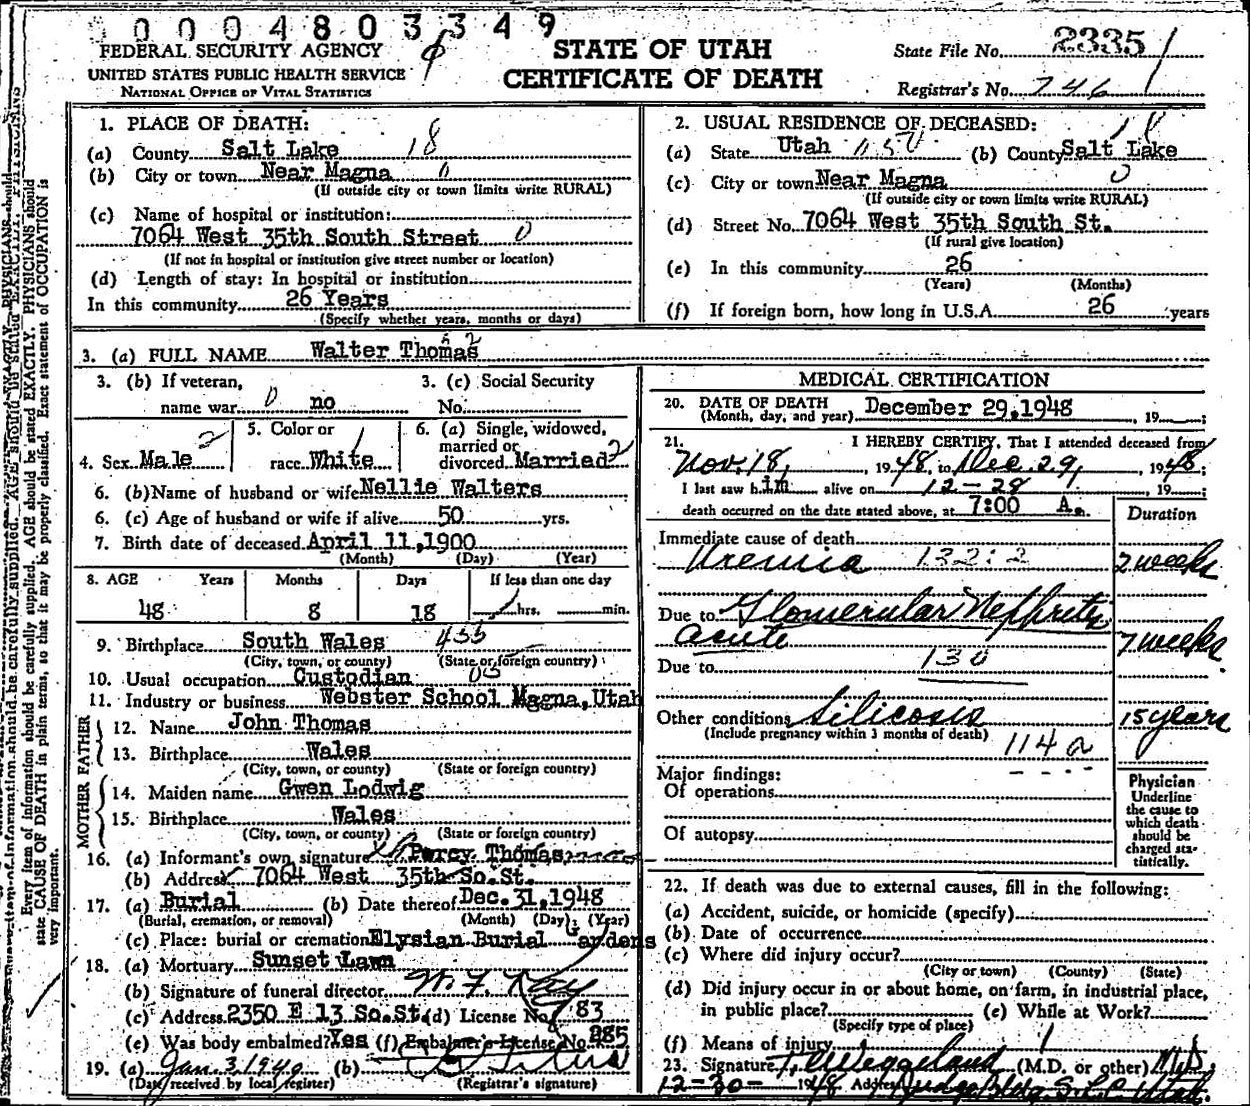 0 0 0 4 8 0 3 3 4 9
FEDERAL SECURITY AGENCY
UNITED STATES PUBLIC HEALTH SERVICE
NATIONAL OFFICE OF VITAL STATISTICS
STATE OF UTAH
CERTIFICATE OF DEATH
State File No. 2335
Registrar's No. 746
1. PLACE OF DEATH:
(a) County Salt Lake 18
(b) City or town Near Magna 0
(If outside city or town limits write RURAL)
(c) Name of hospital or institution:
7064 West 35th South Street 0
(If not in hospital or institution give street number or location)
(d) Length of stay: In hospital or institution
In this community 26 Years
(Specify whether years, months or days)
2. USUAL RESIDENCE OF DECEASED: 18
(a) State Utah (b) County Salt Lake
(c) City or town Near Magna 0
(If outside city or town limits write RURAL)
(d) Street No. 7064 West 35th South St.
(If rural give location)
(e) In this community 26
(Years) (Months)
(f) If foreign born, how long in U.S.A. 26 years
3. (a) FULL NAME Walter Thomas
3. (b) If veteran, name war 0 no
3. (c) Social Security No.
4. Sex Male 2
5. Color or race White 1
6. (a) Single, widowed, married or divorced Married 2
6. (b) Name of husband or wife Nellie Walters
6. (c) Age of husband or wife if alive 50 yrs.
7. Birth date of deceased April 11, 1900
(Month) (Day) (Year)
8. AGE Years Months Days If less than one day
48 8 18 hrs. min.
9. Birthplace South Wales
(City, town, or county) (State or foreign country)
10. Usual occupation Custodian
11. Industry or business Webster School Magna, Utah
FATHER
12. Name John Thomas
13. Birthplace Wales
(City, town, or county) (State or foreign country)
MOTHER
14. Maiden name Gwen Lodwig
15. Birthplace Wales
(City, town, or county) (State or foreign country)
16. (a) Informant's own signature Percy Thomas
(b) Address 7064 West 35th So. St.
17. (a) Burial (b) Date thereof Dec. 31, 1948
(Burial, cremation, or removal) (Month) (Day) (Year)
(c) Place: burial or cremation Elysian Burial Gardens
18. (a) Mortuary Sunset Lawn
(b) Signature of funeral director
(c) Address 2350 E 13 So. St. (d) License No. 783
(e) Was body embalmed? Yes (f) Embalmer's License No. 285
19. (a) Jan. 3, 1949 (b)
(Date received by local register) (Registrar's signature)
MEDICAL CERTIFICATION
20. DATE OF DEATH
(Month, day, and year) December 29, 1948 19 ;
21. I HEREBY CERTIFY, That I attended deceased from
Nov. 18, 1948, to Dec. 29, 1948;
I last saw him alive on 12-28 19 ;
death occurred on the date stated above, at 7:00 A.
Duration
Immediate cause of death
Uremia 132:2 2 weeks
Due to Glomerular Nephritis
acute 7 weeks
Due to 130
Other conditions Silicosis 15 years
(Include pregnancy within 3 months of death)
114 a
Major findings:
Of operations
Of autopsy
Physician
Underline
the cause to
which death
should be
charged sta-
tistically.
22. If death was due to external causes, fill in the following:
(a) Accident, suicide, or homicide (specify)
(b) Date of occurrence
(c) Where did injury occur?
(City or town) (County) (State)
(d) Did injury occur in or about home, on farm, in industrial place,
in public place? (e) While at Work?
(Specify type of place)
(f) Means of injury
23. Signature (M.D. or other) M.D.
12-30- 1948 Address Judge Bldg. S.L.C. Utah.
Every item of information should be carefully supplied. AGE should be stated EXACTLY. PHYSICIANS should
state CAUSE OF DEATH in plain terms, so that it may be properly classified. Exact statement of OCCUPATION is
very important.